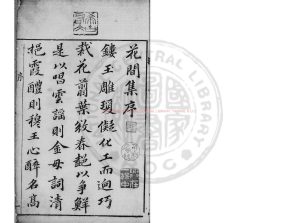 花間集序
鏤玉雕瓊擬化工而逈巧
裁花翦葉敓春豔以爭鮮
是以唱雲謠則金母詞清
挹霞醴則穆王心醉名高
序